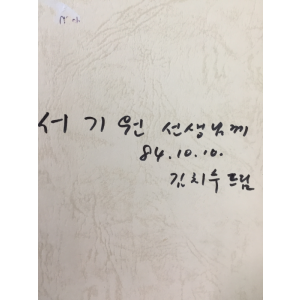 서기원 선생님께
84.10.10.
김치수 드림